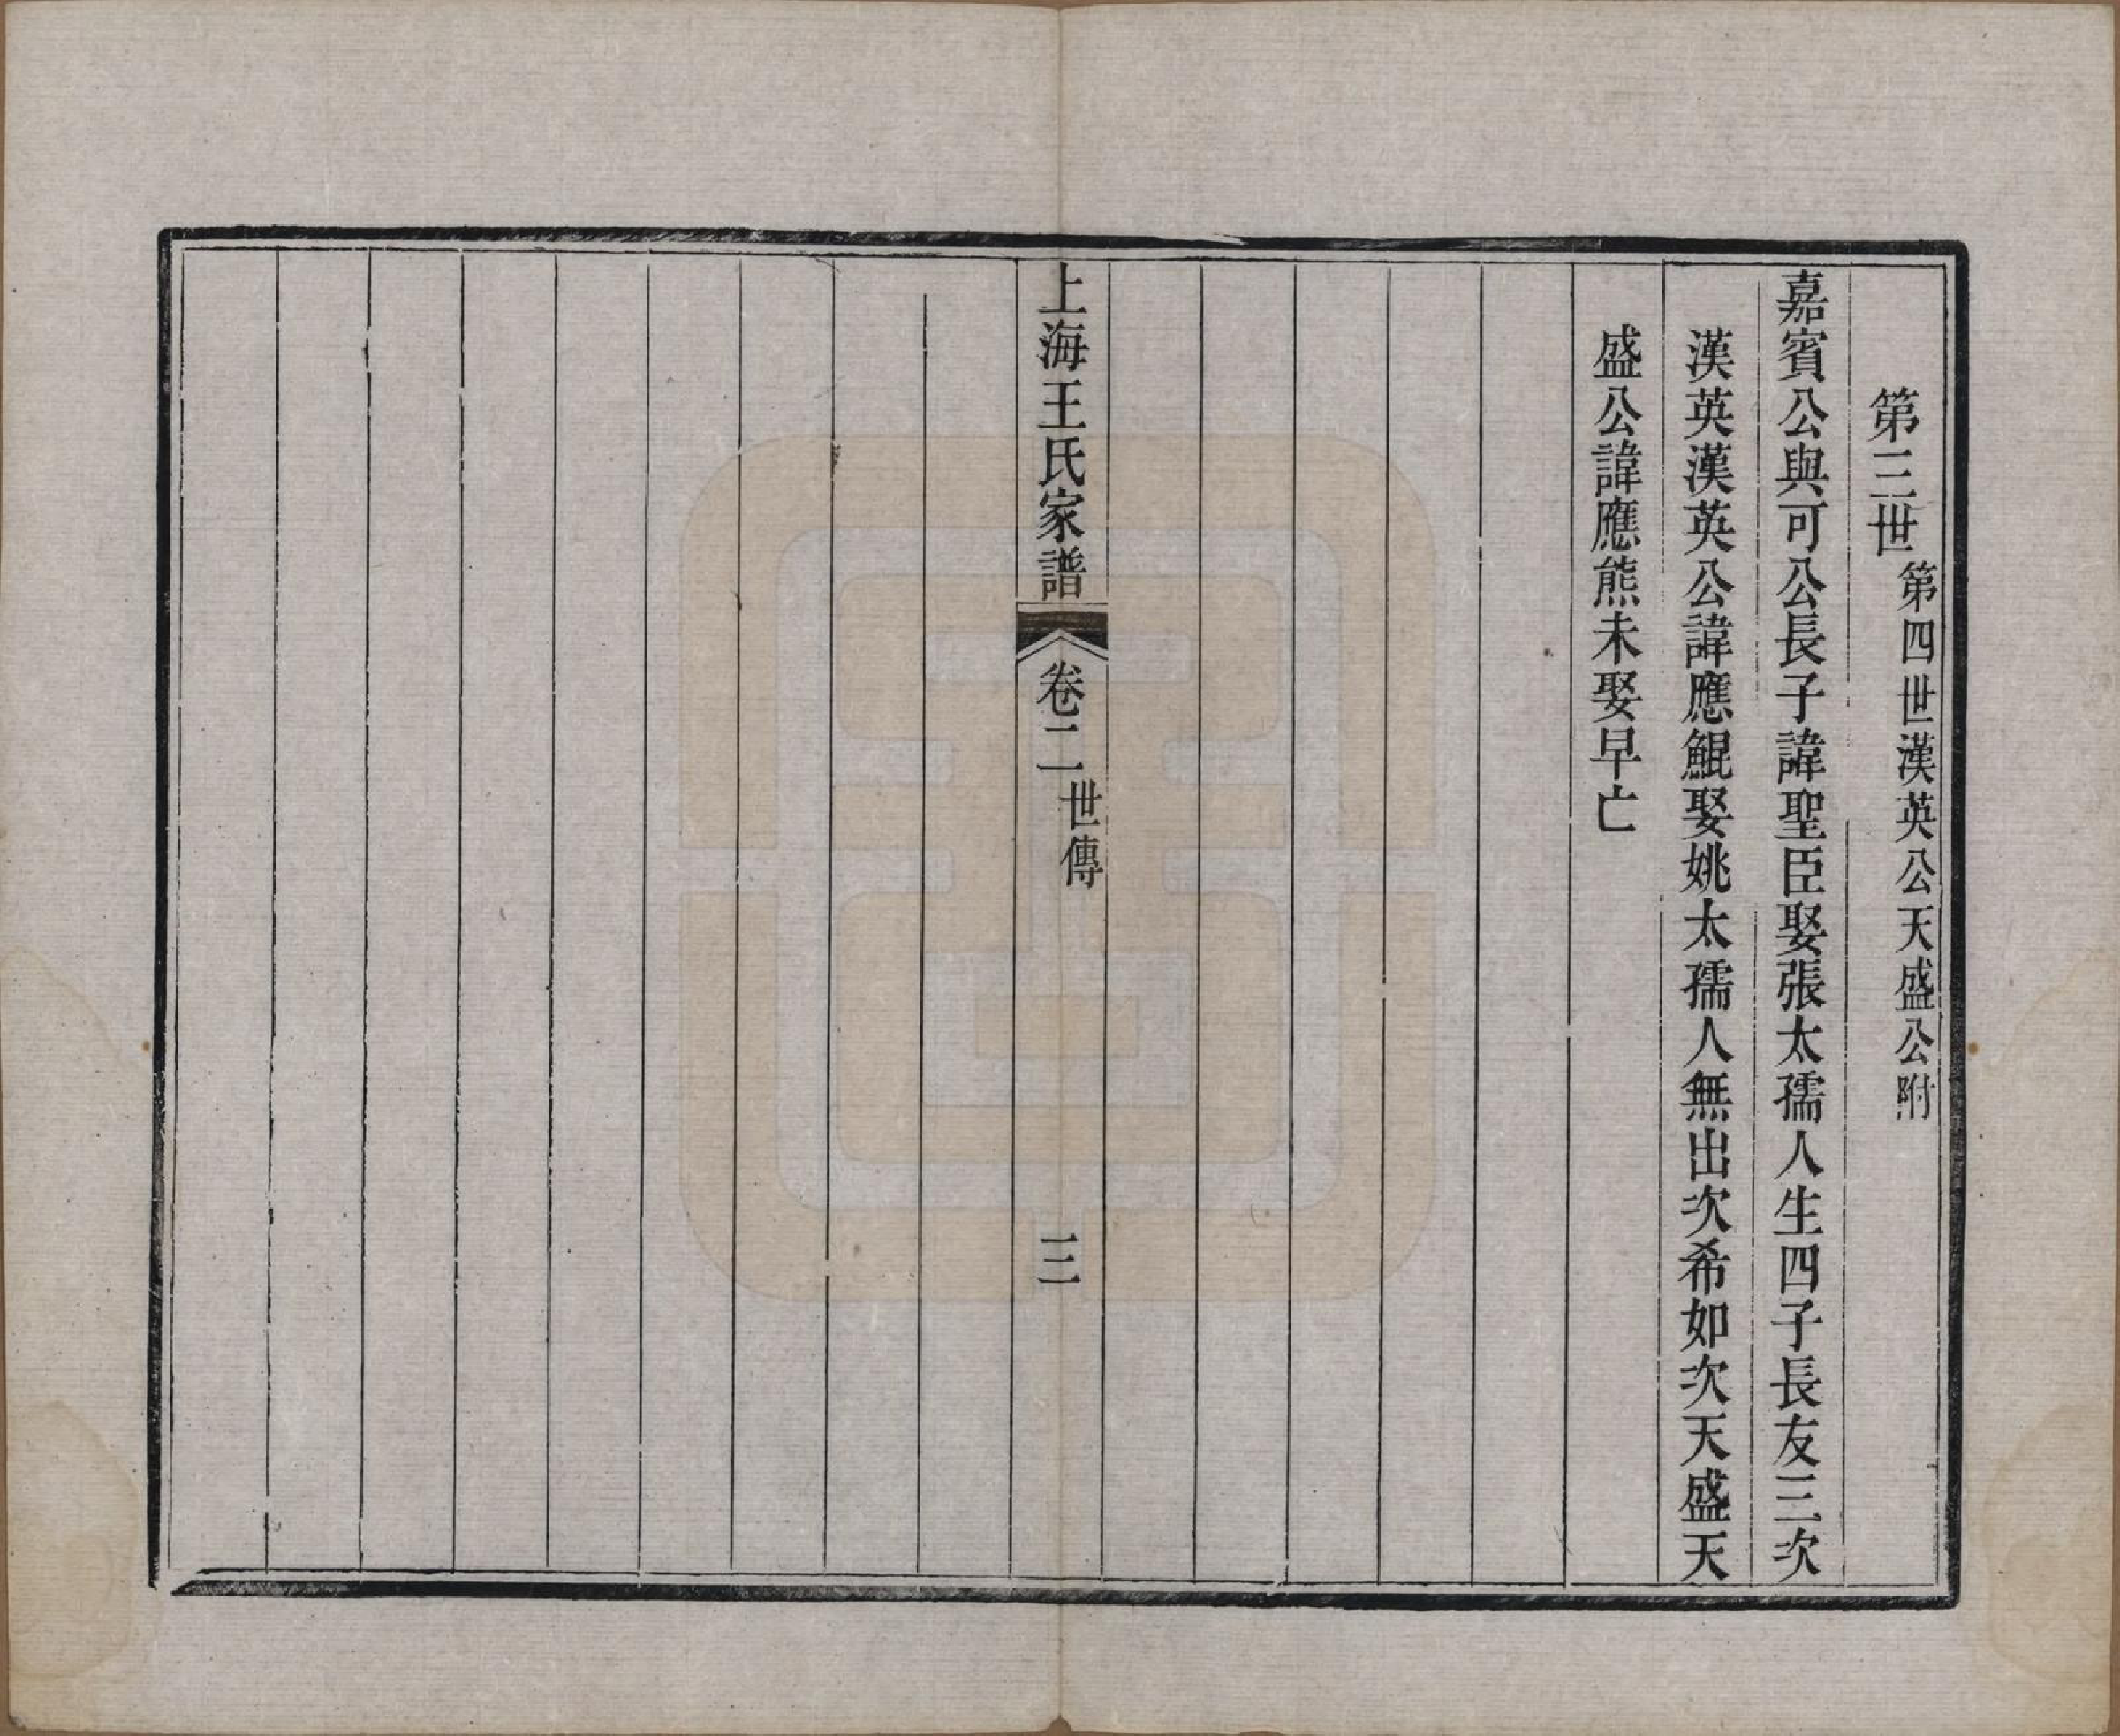 第三世第四世漢英公天盛公附
嘉賓公與可公長子諱聖臣娶張太孺人生四子長友三次
漢英漢英公諱應鯤娶姚太孺人無出次希如次天盛天
盛公諱應熊未娶早亡
上海王氏家譜
卷二世傳
三